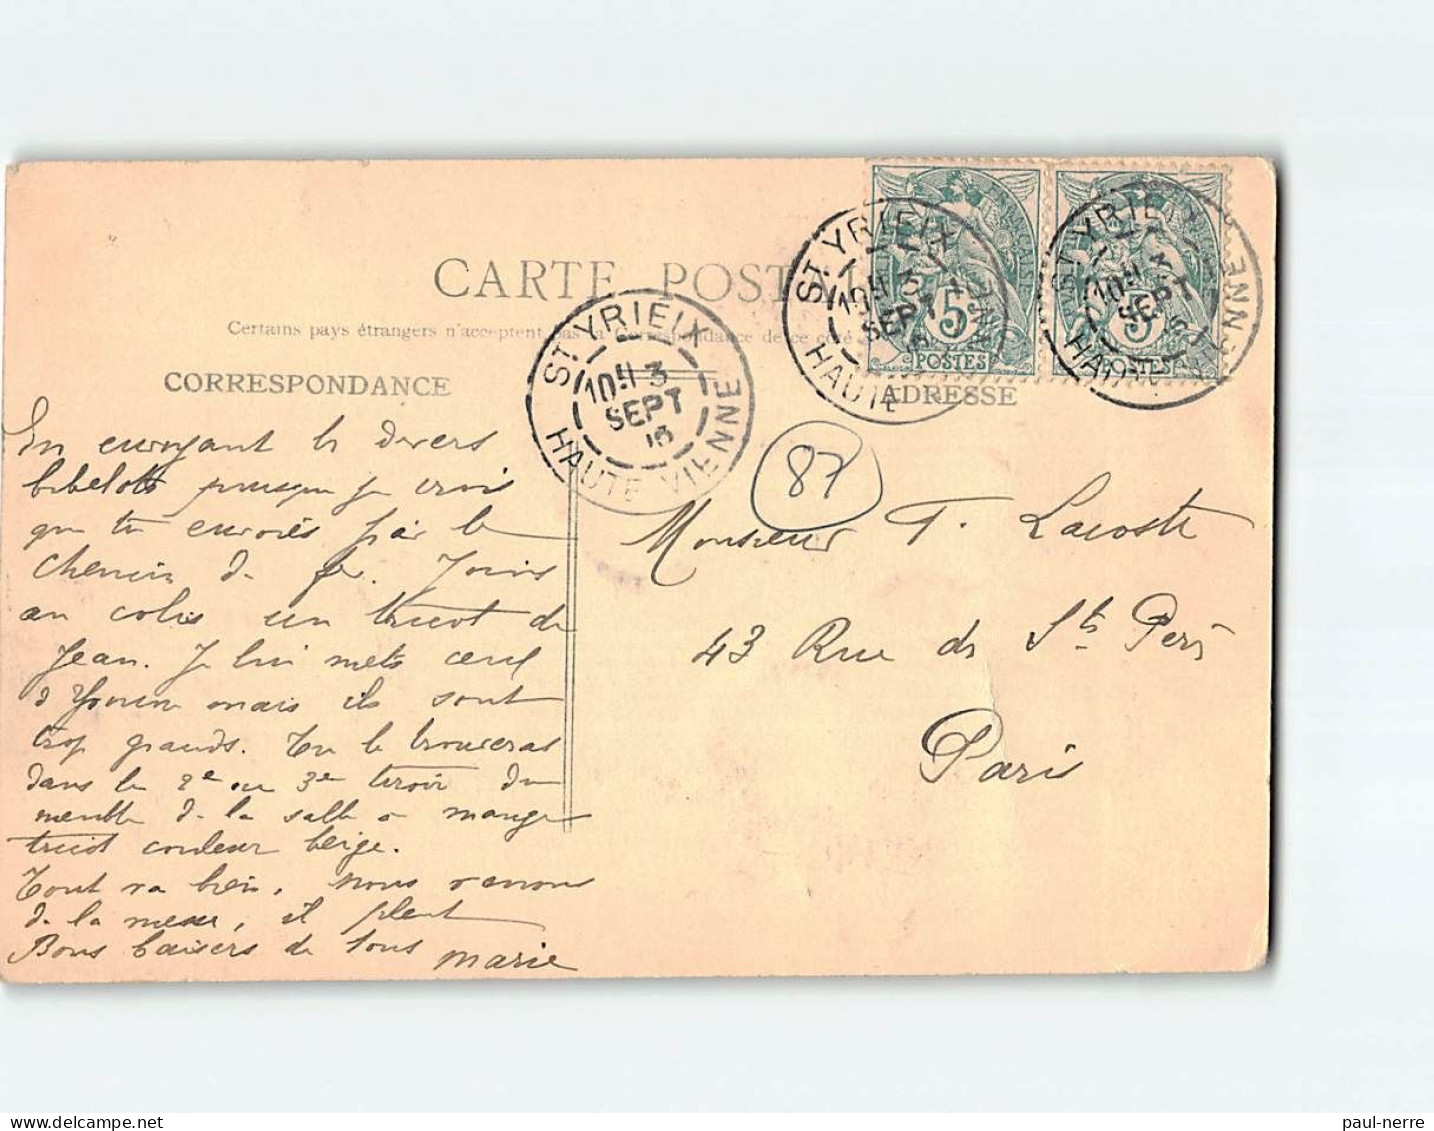 CARTE POSTA
Certains pays étrangers n'acceptent pas la Correspondance de ce côté
CORRESPONDANCE
ADRESSE
ST YRIEIX
10H 3
SEPT
16
HAUTE VIENNE
ST YRIEIX
10H 3
SEPT
HAUTE
5
POSTES
ST YRIEIX
10H 3
SEPT
16
5
POSTES
87
En envoyant les divers
bibelots puisque je crois
que tu envoies par le
chemin de fer. Joins
au colis un tricot de
Jean. Je lui mets ceux
d'Yvonne mais ils sont
trop grands. Tu le trouveras
dans le 2e ou 3e tiroir du
meuble de la salle a manger
tricot couleur beige.
Tout va bien, nous venons
de la messe, il pleut
Bons baisers de tous Marie
Monsieur T. Lacoste
43 Rue des Sts Pères
Paris
paul-nerre
delcampe.net